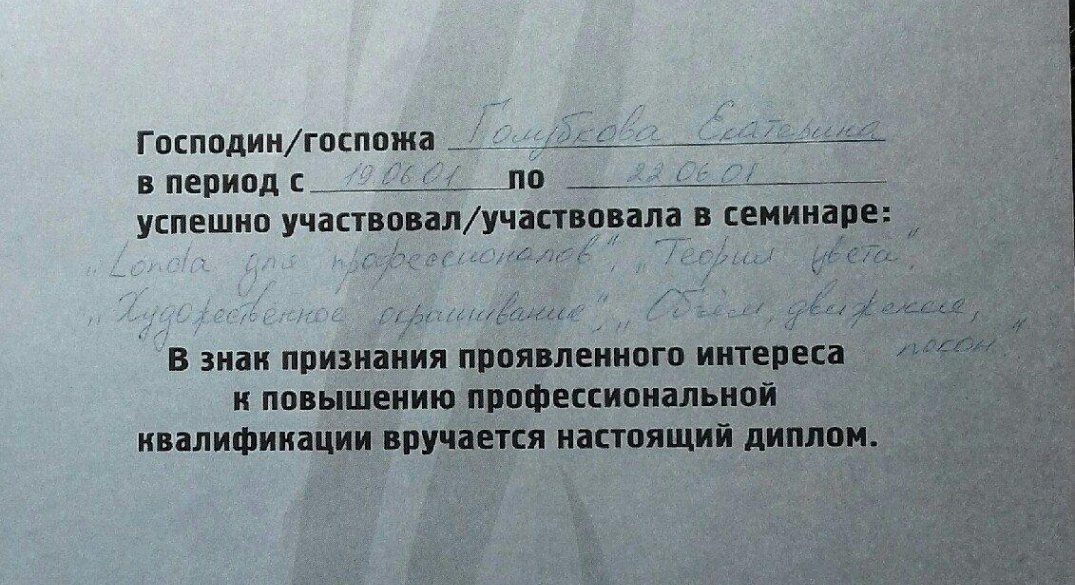 Господин/госпожа Голубкова Екатерина
в период с 19 06 01 по 22 06 01
успешно участвовал/участвовала в семинаре:
„Londa для профессионалов", „Теория цвета",
„Художественное окрашивание", „Объём, движение,
локон"
В знак признания проявленного интереса
к повышению профессиональной
квалификации вручается настоящий диплом.